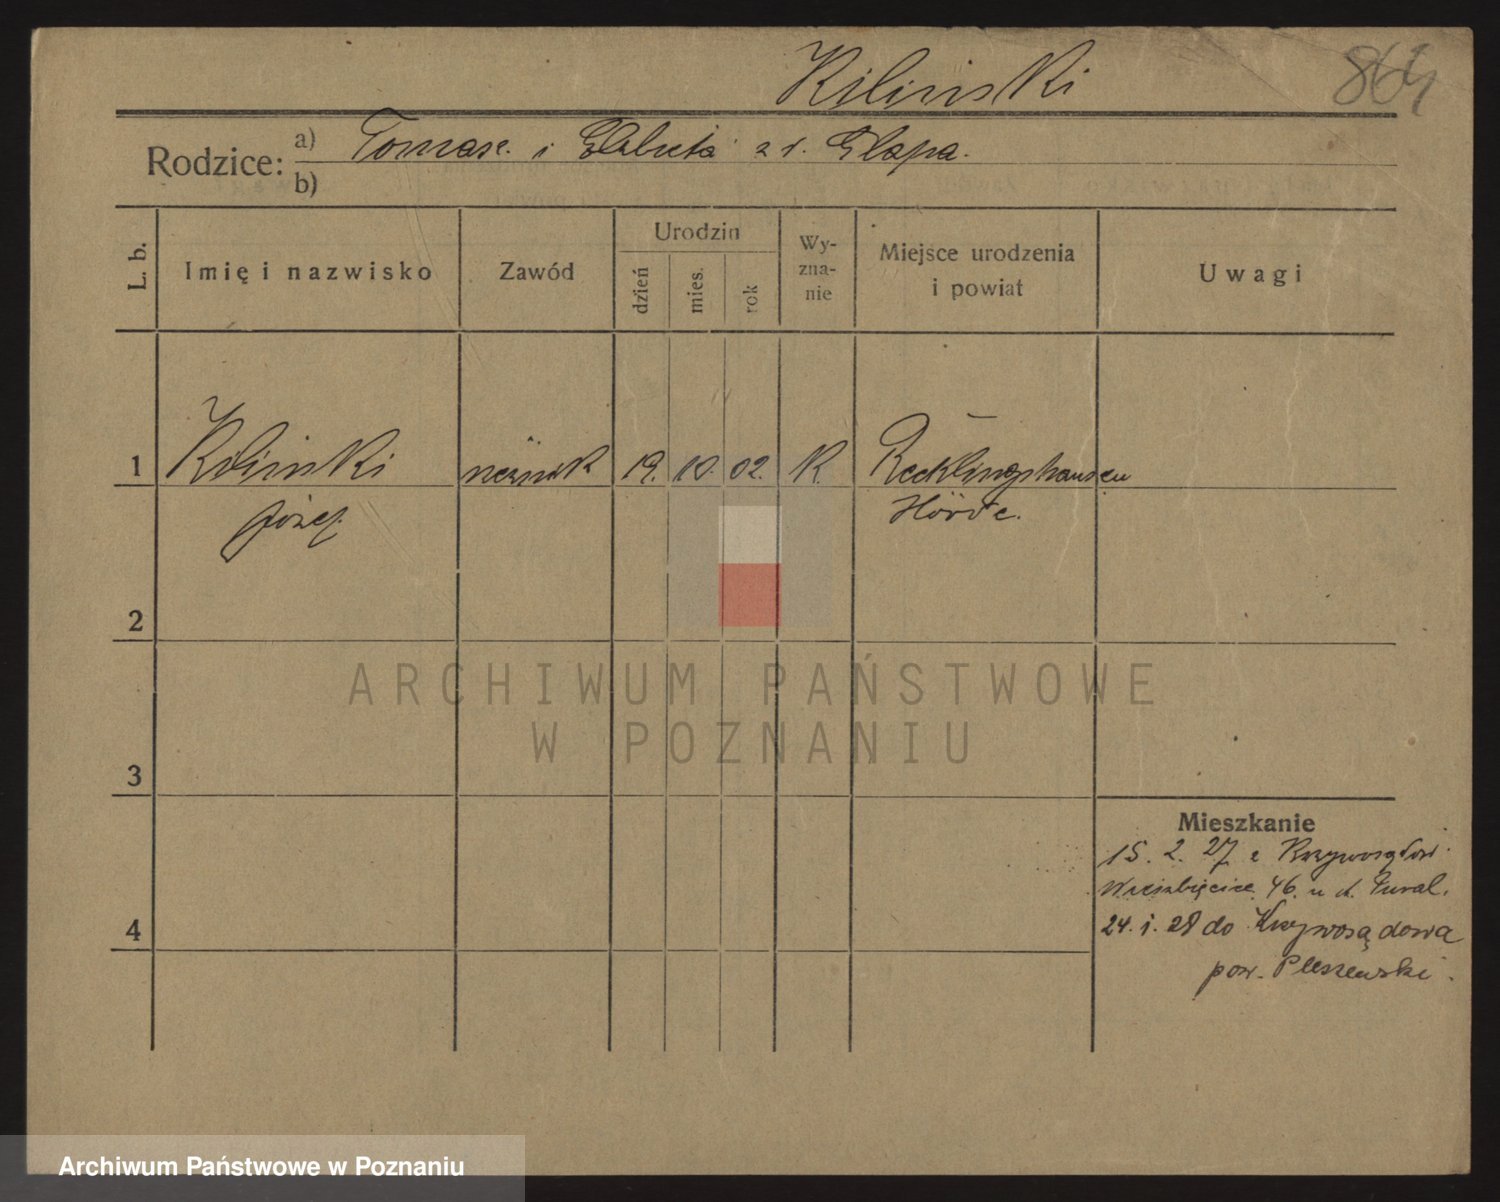 Kiliński
864
Rodzice:
a) Tomasz. i Elżbieta z d. Glapa.
b)
L. b.
Imię i nazwisko
Zawód
Urodzin
dzień
mies.
rok
Wy-
zna-
nie
Miejsce urodzenia
i powiat
Uwagi
1 Kiliński rzeźnik 19. 10. 02. K. Recklinghausen
Józef. Hörde.
2
ARCHIWUM PAŃSTWOWE
W POZNANIU
3
Mieszkanie
15. 2. 27 z
Wierzbięcice 46. u d.
4
24. 1. 28 do Krzywosądowa
pow. Pleszewski.
Archiwum Państwowe w Poznaniu